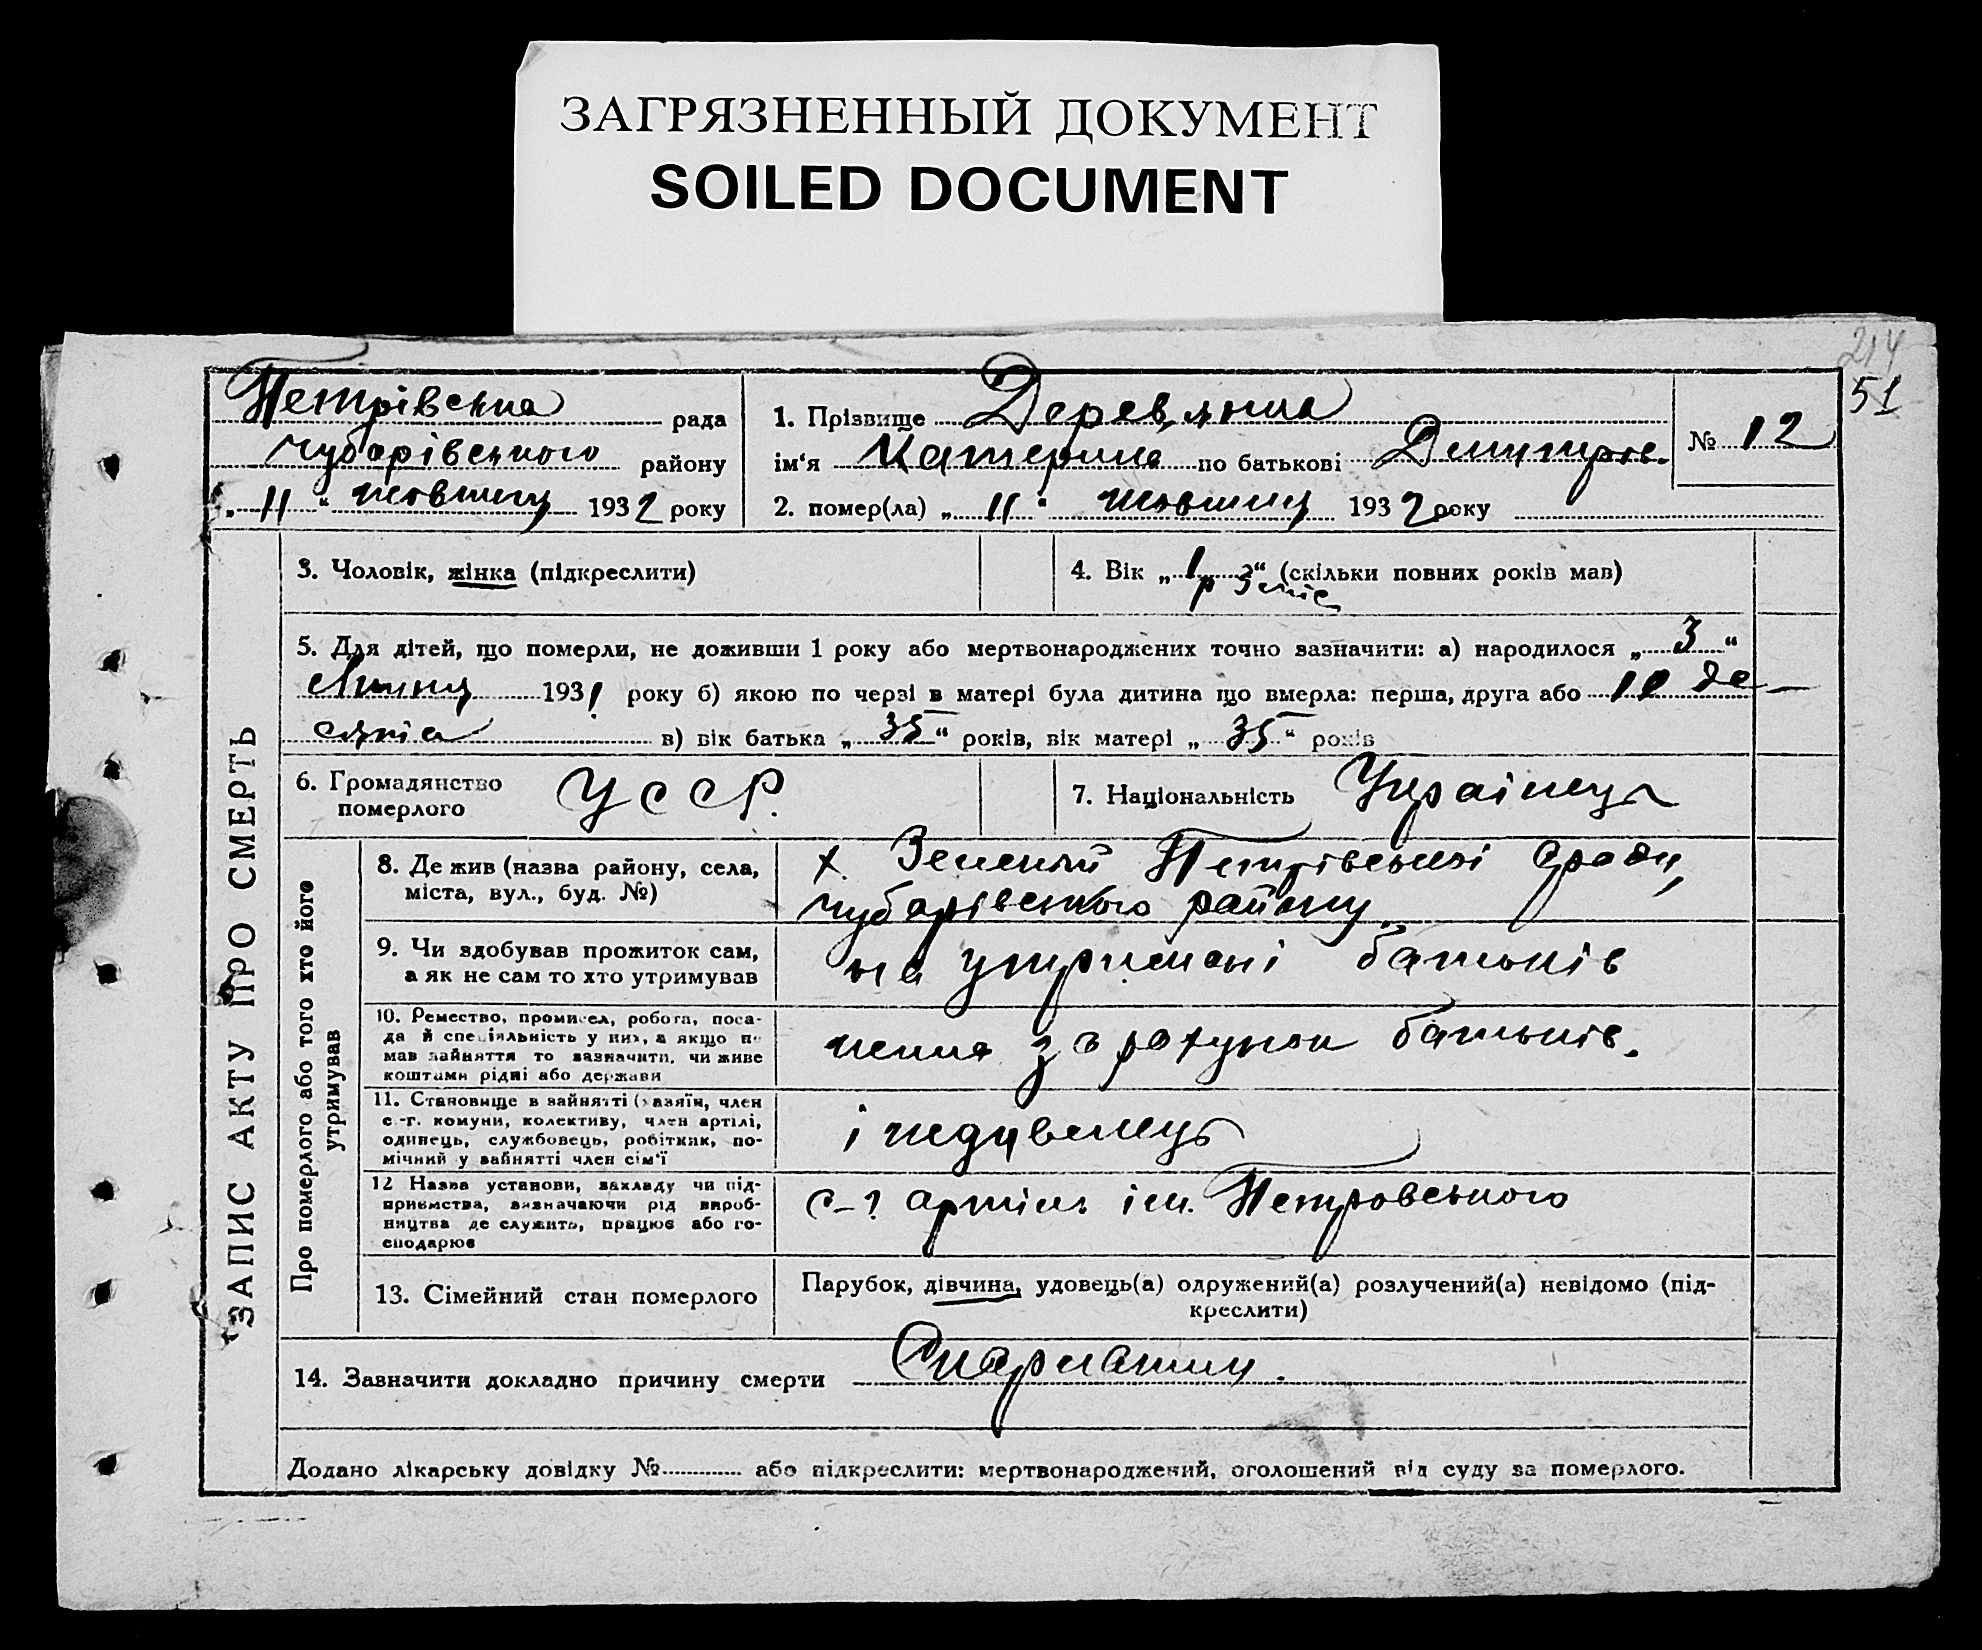 ЗАГРЯЗНЕННЫЙ ДОКУМЕНТ
SOILED DOCUMENT
214
51
Петрівська рада
Чубарівського району
„ 11 “ жовтня 1932 року
1. Прізвище Деревянка
ім‘я Катерина по батькові Дмитров.
2. помер(ла) „ 11 “ жовтня 1932 року
№ 12
ЗАПИС АКТУ ПРО СМЕРТЬ
3. Чоловік, жінка (підкреслити)
4. Вік „ 1 р 3 міс “ (скільки повних років мав)
5. Для дітей, що померли, не доживши 1 року або мертвонароджених точно зазначити: а) народилося „ 3 “
Липня 1931 року б) якою по черзі в матері була дитина що вмерла: перша, друга або 10 де-
сята в) вік батька „ 35 “ років, вік матері „ 35 “ років
6. Громадянство
померлого
УССР.
7. Національність Українець
Про померлого або того хто його
утримував
8. Де жив (назва району, села,
міста, вул., буд. №)
х. Зелений Петрівської сради,
Чубарівського району.
9. Чи здобував прожиток сам,
а як не сам то хто утримував
на утримані батьків
10. Ремество, промисел, робота, поса-
да й спеціяльність у них, а якщо не
мав зайняття то зазначити, чи живе
коштами рідні або держави
за рахунок батьків.
11. Становище в зайнятті (хазяїн, член
с.-г. комуни, колективу, член артілі,
одинець, службовець, робітник, по-
мічний у зайнятті член сім'ї
12 Назва установи, закладу чи під-
приємства, визначаючи рід вироб-
ництва де служить, працює або го-
сподарює
с-г артіль ім. Петровського
13. Сімейний стан померлого
Парубок, дівчина, удовець(а) одружений(а) розлучений(а) невідомо (під-
креслити)
14. Зазначити докладно причину смерти
Додано лікарську довідку № або підкреслити: мертвонароджений, оголошений від суду за померлого.